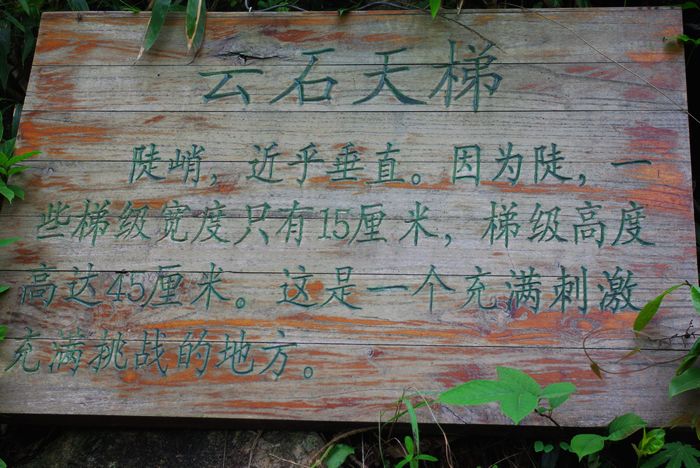 云石天梯
陡峭，近乎垂直。因为陡，一
些梯级宽度只有15厘米，梯级高度
高达45厘米。这是一个充满刺激
充满挑战的地方。